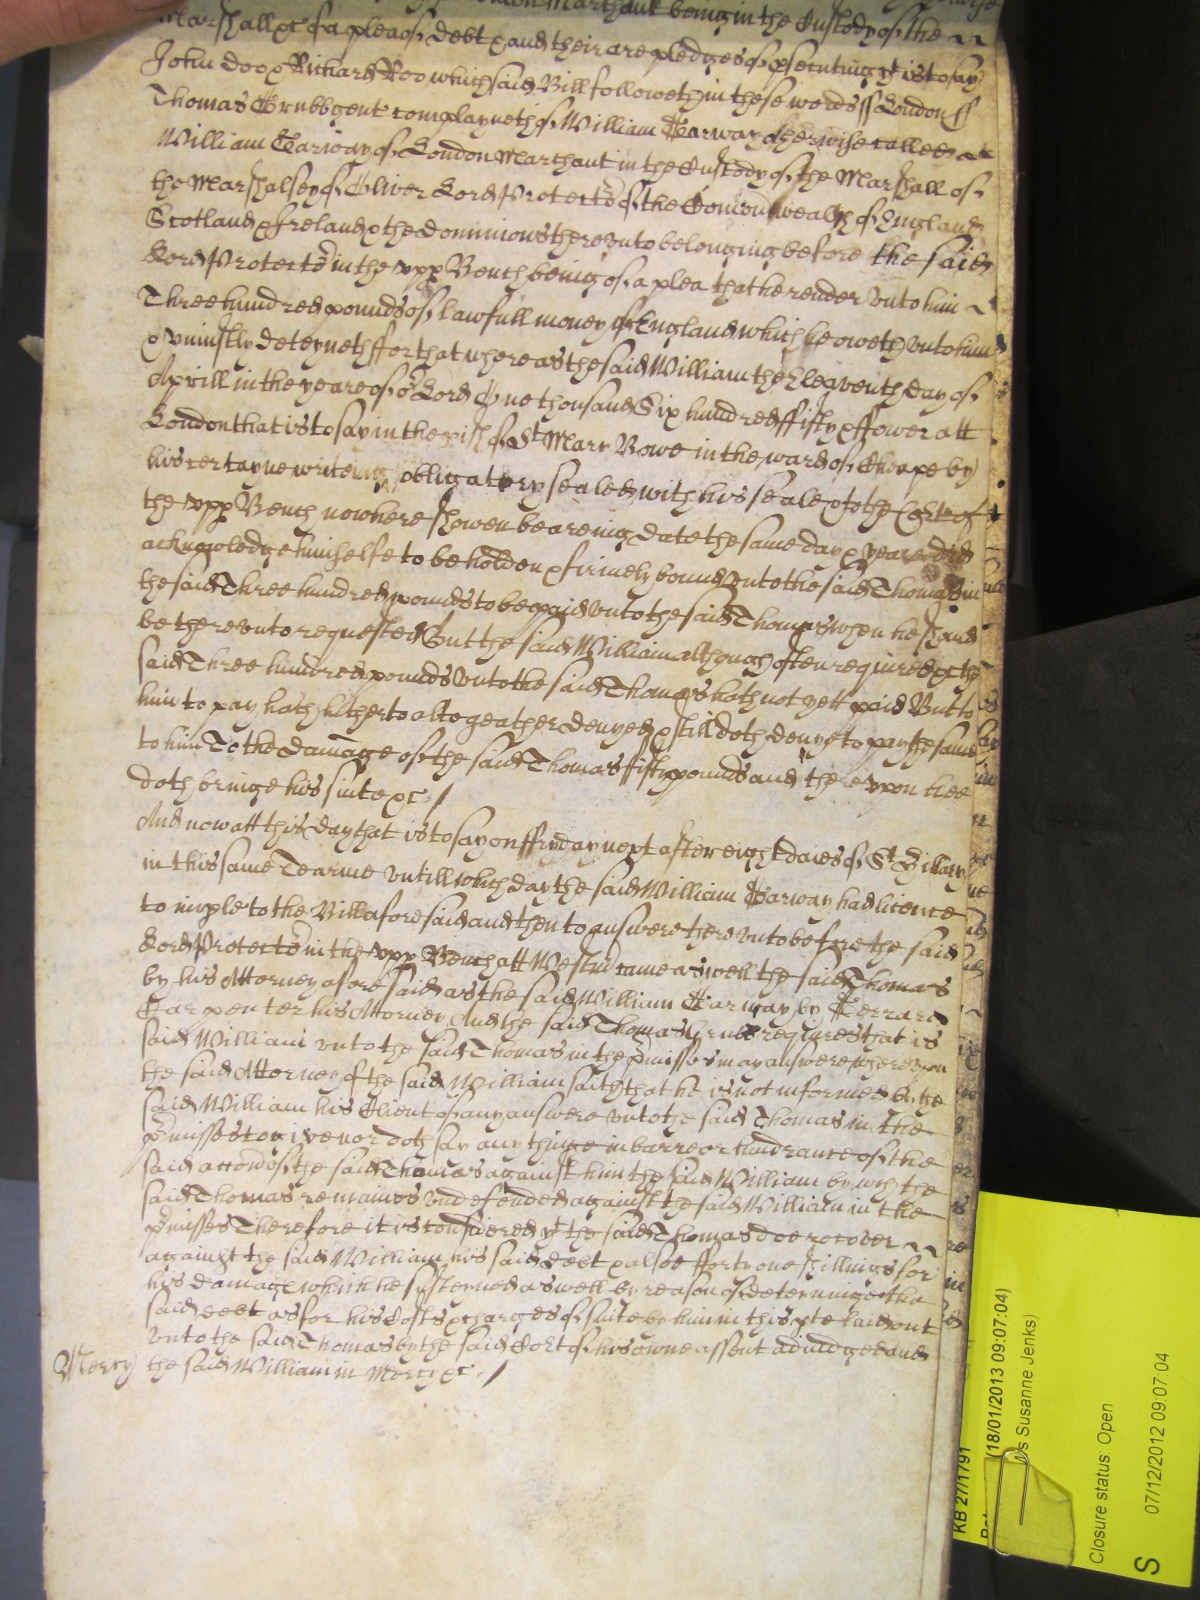 London Marchant being in the Custody of the
Marshall &c of a plea of debt & and their are pledges of psecuting yt is to say
John Doo & Richard Roo which said Bill followeth in these words ss London ss
Thomas Grubb gent complayneth of William Carway otherwise called
William Carway of London Marchant in the Custody of the Marshall of
the Marshalsey of Oliver Lord Protector of the Comonwealth of England
Scotland & Ireland & the dominions thereunto belonging before the said
Lord Protector in the upp Bench being of a plea that he render unto him
Three hundred pounds of lawfull money of England which he oweth unto him
& uniustly deteyneth ffor that whereas the said William the Eleaventh day of
Aprill in the yeare of or Lord One thousand Six hundred ffifty & ffower att
London that is to say in the pish of St Mary Bowe in the ward of Cheape by
his certayne writeing obligatory sealed with his seale & to the Cort of
the upp Bench now here showen beareing date the same day & yeare did
acknowledge himselfe to be holden & firmely bound unto the said Thomas in
the said Three hundred pounds to be paid unto the said Thomas when he should
be thereunto requested But the said William although often required &c the
said Three hundred pounds unto the said Thomas hath not yett paid But to
him to pay hath hitherto altogeather denyed & still doth deny to pay the same
to him To the damage of the said Thomas ffifty pounds and thereupon hee
doth bringe his suite &c /
And now att this day that is to say on ffryday next after eight daies of St Hillary
in this same Tearme untill which day the said William Carway had licence
to imple to the Bill aforesaid and then to answere thereunto before the said
Lord Protector in the upp Bench att Westm came aswell the said Thomas
by his Attorney aforesaid as the said William Carway by Gerrard
Carpenter his Attorney And the said Thomas Grubb requires that is
said William unto the said Thomas in the pmisses may answere whereupon
the said Attorney of the said William saith that he is not informed by the
said William his Client of any answere unto the said Thomas in the
pmisses to give nor doth say any thinge in barre or hindrance of the
said accon of the said Thomas against him the said William by wch the
said Thomas remaines undefended against the said William in the
pmisses Therefore it is considered yt the said Thomas doe recover
against the said William his said debt & alsoe fforty one shillings for
his damage which he susteyned aswell by reason of deteyninge the
said debt as for his Costs & charges of suite by him in this pte laid out
unto the said Thomas by the said Cort of his owne assent adiudged and
Mercy the said William in Mercy &c /
KB 27/1791
(18/01/2013 09:07:04)
Ms Susanne Jenks)
Closure status: Open
S 07/12/2012 09:07:04